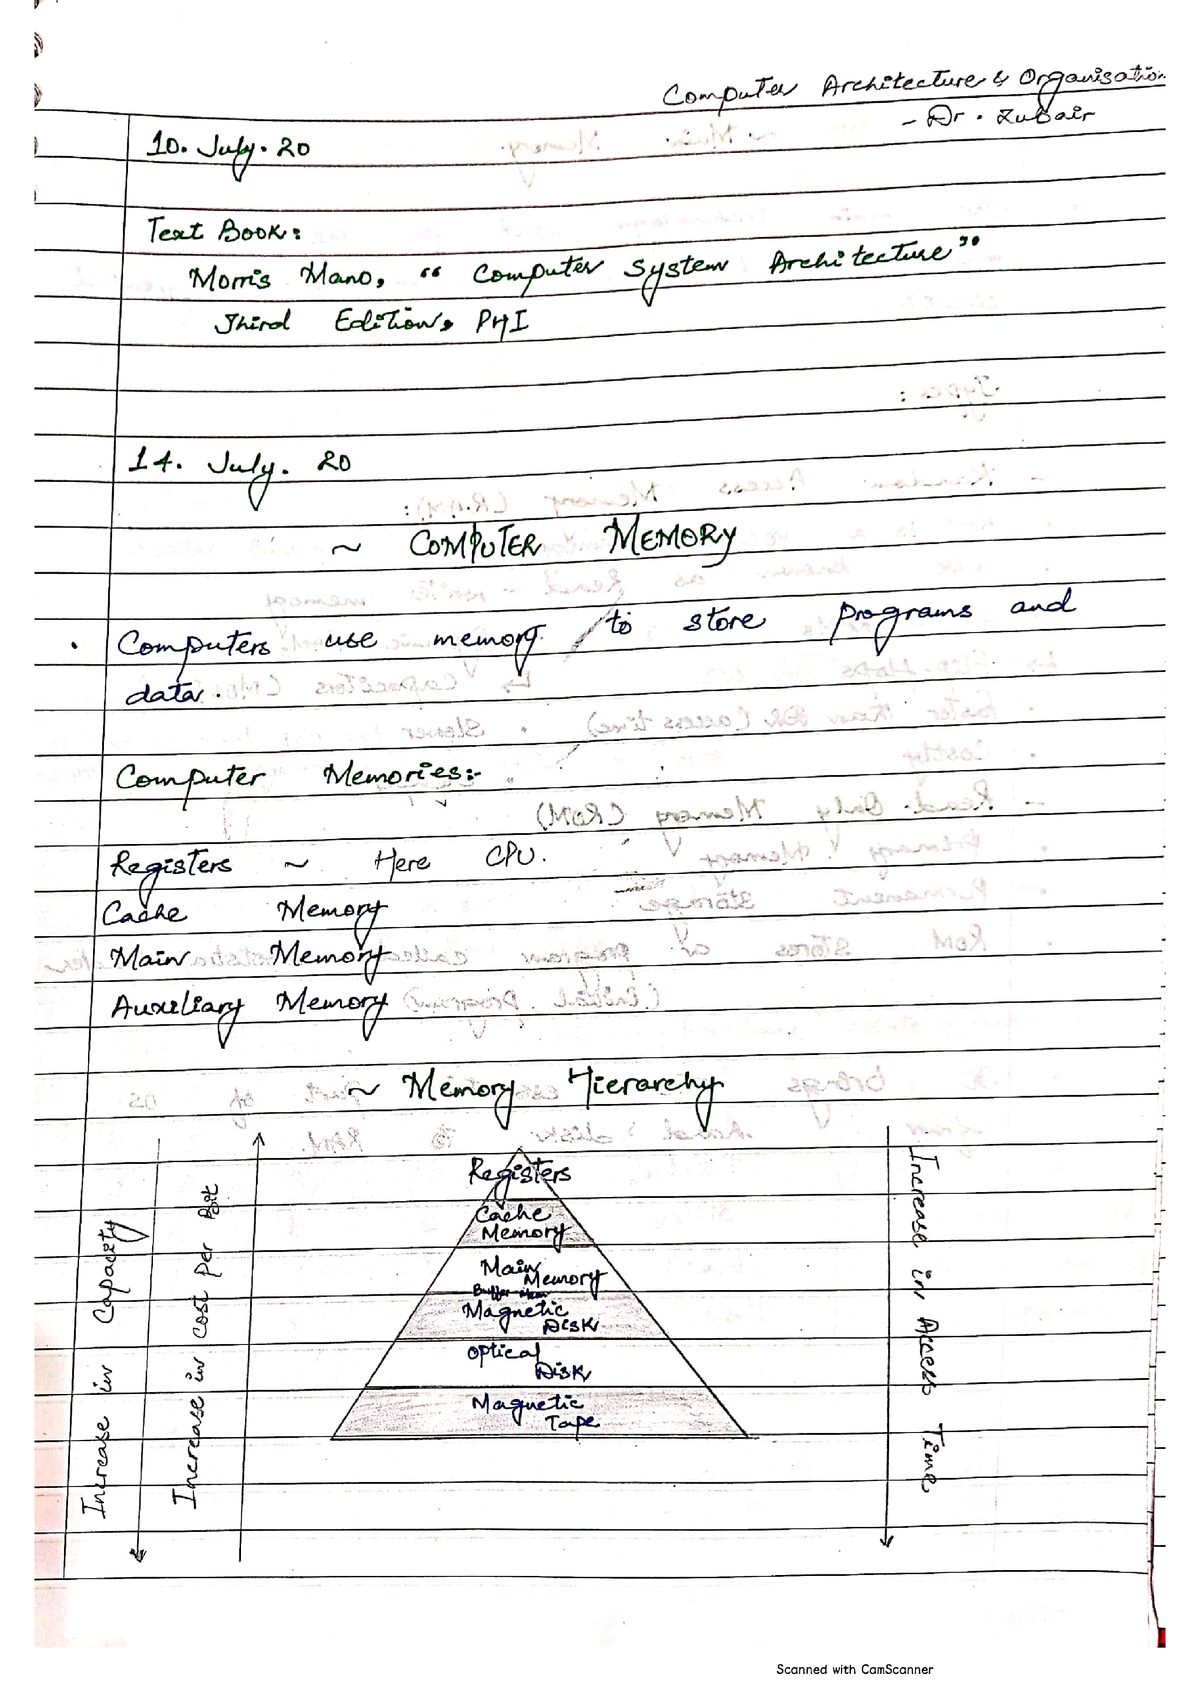 Computer Architecture & Organisation
- Dr. Zubair
10. July. 20
Text Book:
Morris Mano, "Computer System Architecture"
Third Edition, PHI
14. July. 20
~ COMPUTER MEMORY
. Computers use memory to store programs and
data.
Computer Memories:-
Registers ~ Here CPU.
Cache Memory
Main Memory
Auxiliary Memory
~ Memory Hierarchy
Increase in Capacity
Increase in cost per Bit
Registers
Cache
Memory
Main
Memory
Magnetic
Disk
Optical
Disk
Magnetic
Tape
Increase in Access Time
Scanned with CamScanner